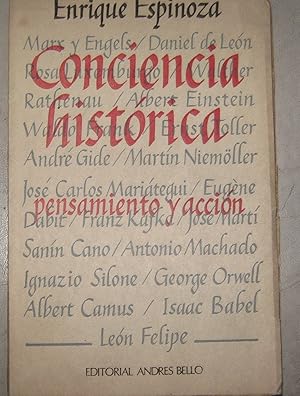 Enrique Espinoza
Marx y Engels / Daniel de León
Conciencia
Rosa Luxemburgo / Walther
Rathenau / Albert Einstein
histórica
Waldo Frank / Ernst Toller
André Gide / Martín Niemöller
José Carlos Mariátegui / Eugène
pensamiento y acción
Dabit / Franz Kafka / José Martí
Sanín Cano / Antonio Machado
Ignazio Silone / George Orwell
Albert Camus / Isaac Babel
León Felipe
EDITORIAL ANDRES BELLO